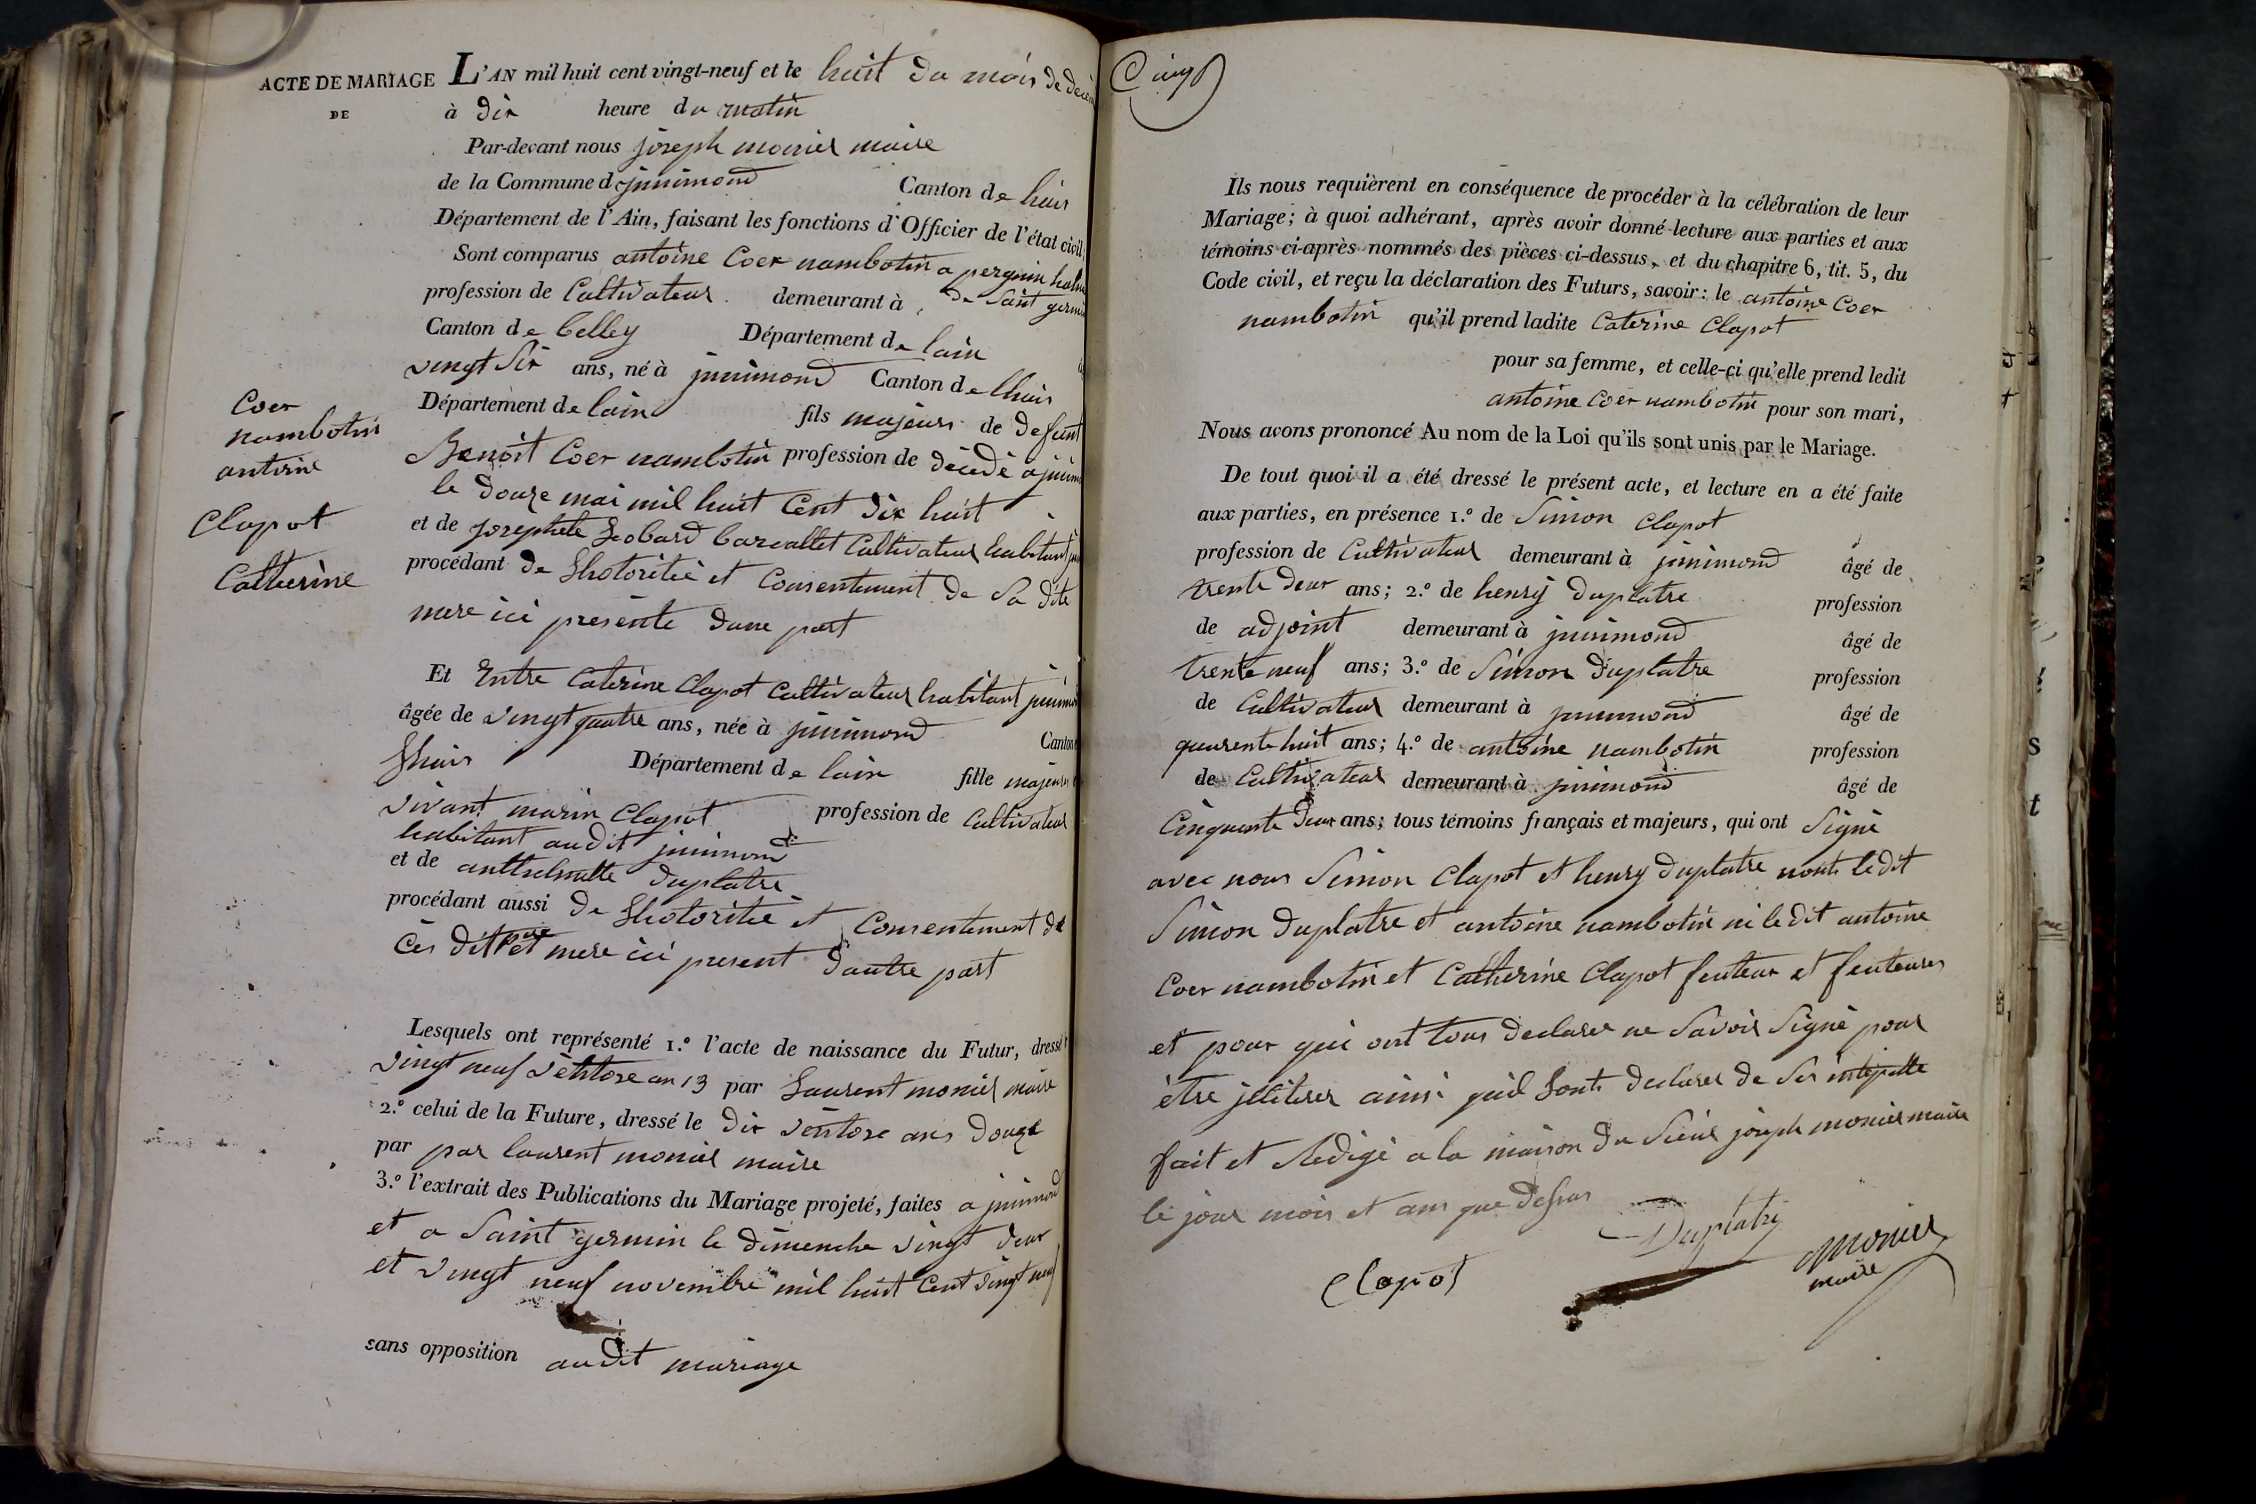 ACTE DE MARIAGE
DE
Coer
nambotin
antoine
Clapot
Catherine
L'AN mil huit cent vingt-neuf et le huit du mois de
à dix heure du matin
Par-devant nous joseph monier maire
de la Commune d jnnimond Canton de huis
Département de l'Ain, faisant les fonctions d'Officier de l'état civil
Sont comparus antoine Coer nambotin a
profession de Cultivateur demeurant à de Saint germ
Canton de belley Département de lain
vingt Six ans, né à jnnimond Canton de lhuis
Département de lain fils majeur de defunt
Benoit Coer nambotin profession de décédé a
le douze mai mil huit Cent dix huit
et de josephte Cultivateur habitant
procédant de Lhotoritié et Consentement de Sa dite
mere ici présente dune part
Et Entre Caterine Clapot Cultivateur habitant
âgée de vingt quatre ans, née à jnnimond Canton
Lhuis Département de lain fille majeure
vivant marin Clapot profession de Cultivateur
habitant audit jnnimond
et de duplatre
procédant aussi de Lhotoritié et Consentement de
Ces dit Pere et mere ici present dautre part
Lesquels ont représenté 1.º l'acte de naissance du Futur, dressé
vingt neuf ventose an 13 par Laurent monier maire
2.º celui de la Future, dressé le dix ventose ans douze
par par laurent monier maire
3.º l'extrait des Publications du Mariage projeté, faites a jnnimond
et a Saint germin le dimenche vingt deux
et vingt neuf novembre mil huit Cent vingt neuf
sans opposition audit mariage
Cinq
Ils nous requièrent en conséquence de procéder à la célébration de leur
Mariage; à quoi adhérant, après avoir donné lecture aux parties et aux
témoins ci-après nommés des pièces ci-dessus, et du chapitre 6, tit. 5, du
Code civil, et reçu la déclaration des Futurs, savoir: le antoine Coer
nambotin qu'il prend ladite Caterine Clapot
pour sa femme, et celle-ci qu'elle prend ledit
antoine Coer nambotin pour son mari,
Nous avons prononcé Au nom de la Loi qu'ils sont unis par le Mariage.
De tout quoi il a été dressé le présent acte, et lecture en a été faite
aux parties, en présence 1.º de Simon Clapot
profession de Cultivateur demeurant à jnnimond âgé de
trente deux ans; 2.º de henry duplatre profession
de adjoint demeurant à jnnimond âgé de
trente neuf ans; 3.º de Simon duplatre profession
de Cultivateur demeurant à jnnimond âgé de
quarente huit ans; 4.º de antoine nambotin profession
de Cultivateur demeurant à jnnimond âgé de
Cinquente deux ans; tous témoins français et majeurs, qui ont Signé
avec nous Simon Clapot et henry duplatre nonts ledit
Simon duplatre et antoine nambotin ni le dit antoine
Coer nambotin et Catherine Clapot feuteur et feuteures
et pour qui ont tous declarer ne Savoir Signé pour
être ainsi quil Lonts declarer de Ser
fait et Rédigé a la maison du Sieur joseph monier maire
le jour mois et ans que dessus
Clapot
Duplatre
Monier
maire